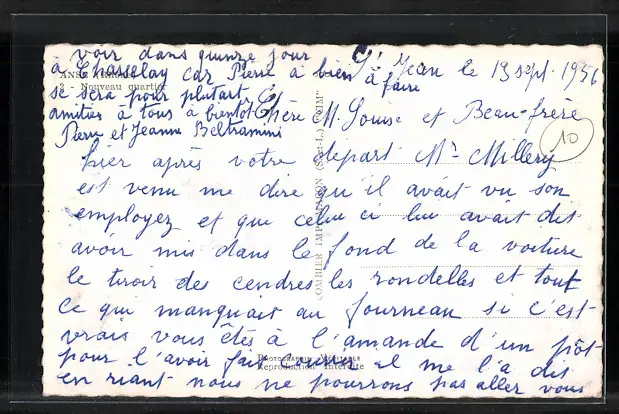 voir dans quinze jour
à Chasselay car Pierre à bien à faire
se sera pour plutart
amitiés à tous à bientôt
Pierre et Jeanne Beltramini
ANSE
2 - Nouveau quartier
St Jean le 19 sept. 1956
Chère M. Louise et Beau-frère
10
hier après votre depart Mr Millery
est venu me dire qu'il avait vu son
employez et que celui ci lui avait dit
avoir mis dans le fond de la voiture
le tiroir des cendres les rondelles et tout
ce qui manquait au fourneau si c'est
vrais vous êtes à l'amande d'un pôt
pour l'avoir fait courir il me l'a dit
en riant nous ne pourrons pas aller vous
COMBIER IMP. MACON (S.-et-L.) "CIM"
PHOTOGRAPHIE VÉRITABLE
Reproduction interdite